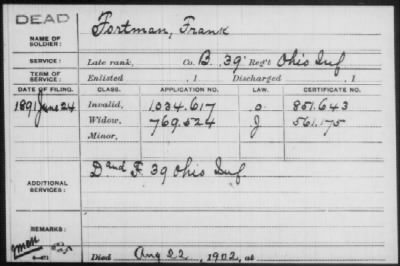 DEAD
NAME OF SOLDIER: Fortman, Frank
SERVICE: Late rank, Co. B. 39 Reg't Ohio Inf
TERM OF SERVICE: Enlisted , 1 Discharged , 1
DATE OF FILING. CLASS. APPLICATION NO. LAW. CERTIFICATE NO.
1891 June 24 Invalid, 1.034.617 O 851.643
Widow, 769.524 J 561.175
Minor,
ADDITIONAL SERVICES: D and F 39 Ohio Inf
REMARKS:
Died Aug 22, 1902, at